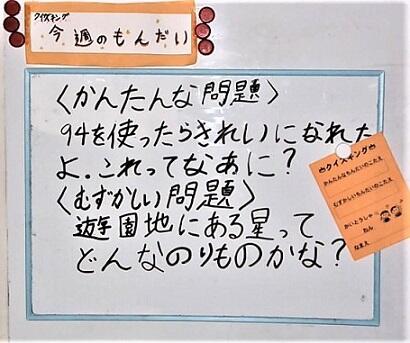 クイズキング
今週のもんだい
<かんたんな問題>
94を使ったらきれいになれた
よ.これってなあに?
<むずかしい問題>
遊園地にある星って
どんなのりものかな?
クイズキング
かんたんなもんだいのこたえ
むずかしいもんだいのこたえ
かいとうしゃ
ねん
なまえ